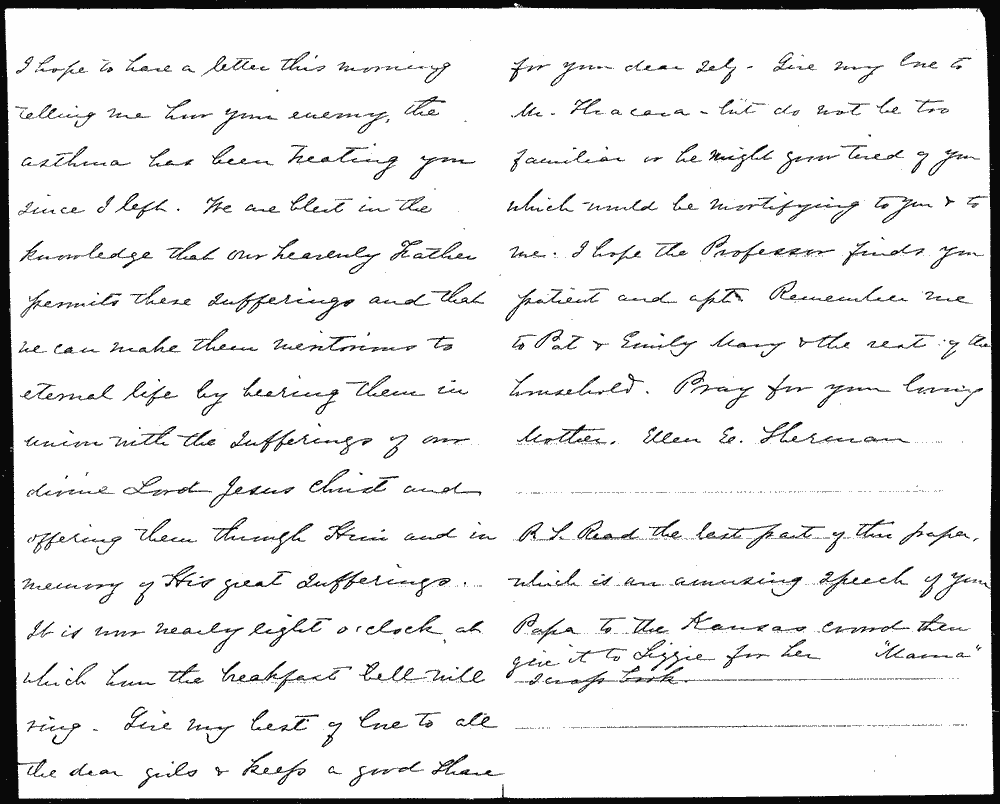 I hope to have a letter this morning
telling me how your enemy, the
asthma has been treating you
since I left. We are blest in the
knowledge that our heavenly Father
permits these sufferings and that
we can make them meritorious to
eternal life by bearing them in
union with the sufferings of our
divine Lord Jesus Christ and
offering them through Him and in
memory of His great sufferings.
It is now nearly eight o'clock, at
which hour the breakfast bell will
ring. Give my best of love to all
the dear girls & keep a good share
for your dear self. Give my love to
Mr. - but do not be too
familiar or he might grow tired of you
which would be mortifying to you & to
me. I hope the Professor finds you
patient and apt. Remember me
to Pat & Emily Mary & the rest of the
household. Pray for your loving
Mother. Ellen E. Sherman
P. S. Read the last part of this paper,
which is an amusing speech of your
Papa to the Kansas crowd then
give it to Lizzie for her "Mama"
scrap book.